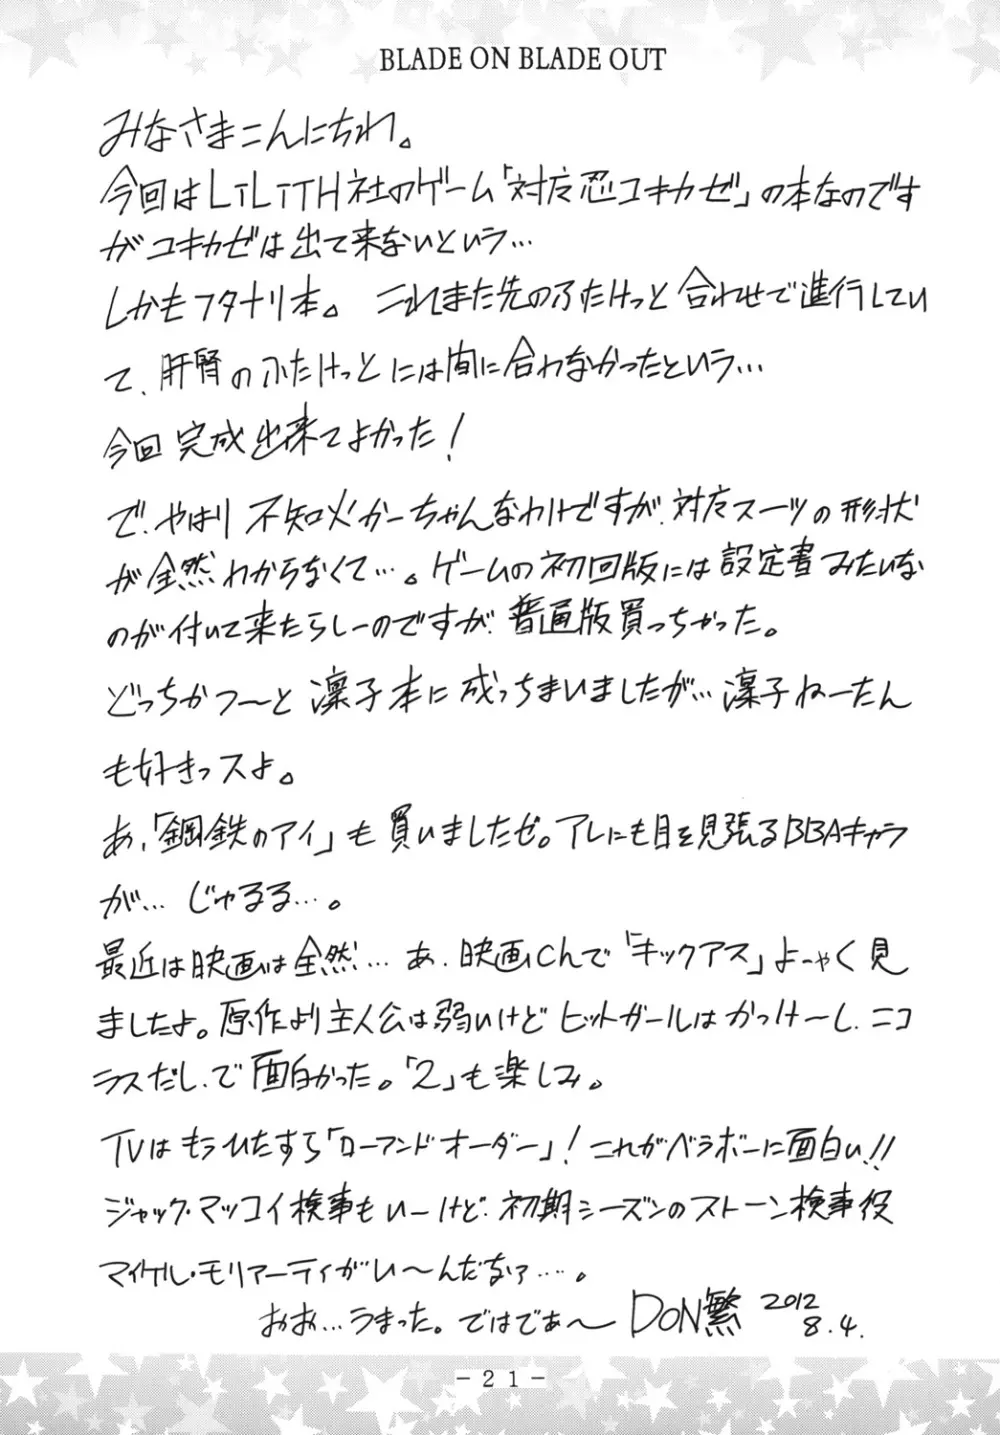 BLADE ON BLADE OUT
みなさまこんにちわ。
今回はLILITH社のゲーム「対魔忍ユキカゼ」の本なのです
がユキカゼは出て来ないという…
しかもフタナリ本。これまた先のふたけっと合わせで進行してい
て、肝腎のふたけっとには間に合わなかったという…
今回完成出来てよかった！
で、やはり不知火かーちゃんなわけですが、対魔スーツの形状
が全然わからなくて…。ゲームの初回版には設定書みたいな
のが付いて来たらしーのですが、普通版買っちゃった。
どっちかつ〜と凛子本に成っちまいましたが…凛子ねーたん
も好きっスよ。
あ、「鋼鉄のアイ」も買いましたぜ。アレにも目を見張るBBAキャラ
が… じゅるる…。
最近は映画は全然… あ、映画Chで「キックアス」よーやく見
ましたよ。原作より主人公は弱いけどヒットガールはかっけ〜し、ニコ
ラスだし、で面白かった。「2」も楽しみ。
TVはもうひたすら「ローアンドオーダー」！これがベラボーに面白い!!
ジャック・マッコイ検事もいーけど、初期シーズンのストーン検事役
マイケル・モリアーティがい〜んだなァ…。
おお…うまった。ではでぁ〜 DON繁 2012
8.4.
-21-